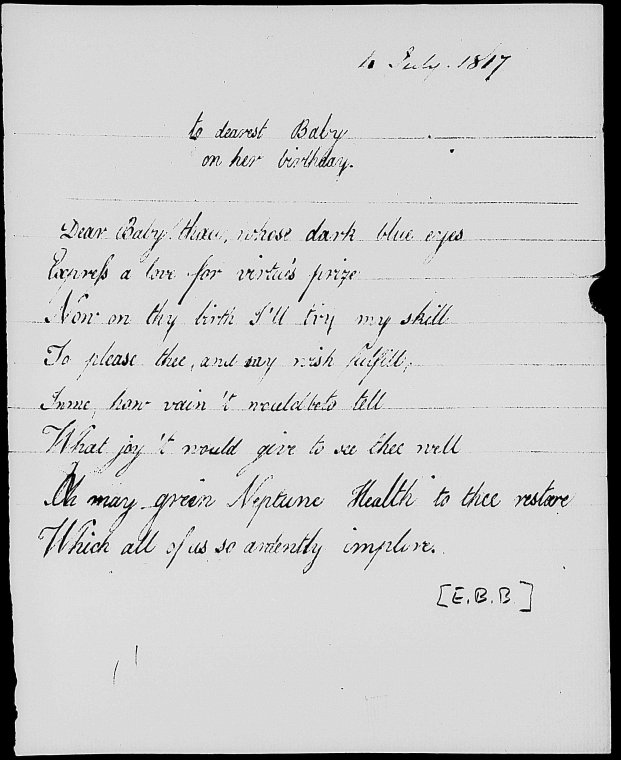 4 July. 1817
to dearest Baby
on her birthday.
Dear Baby! thou, whose dark blue eyes
Express a love for virtue's prize
Now on thy birth I'll try my skill
To please thee, and my wish fulfill,
In me, how vain 't would be to tell
What joy 't would give to see thee well
Oh may green Neptune Health to thee restore
Which all of us so ardently implore.
[E.B.B.]